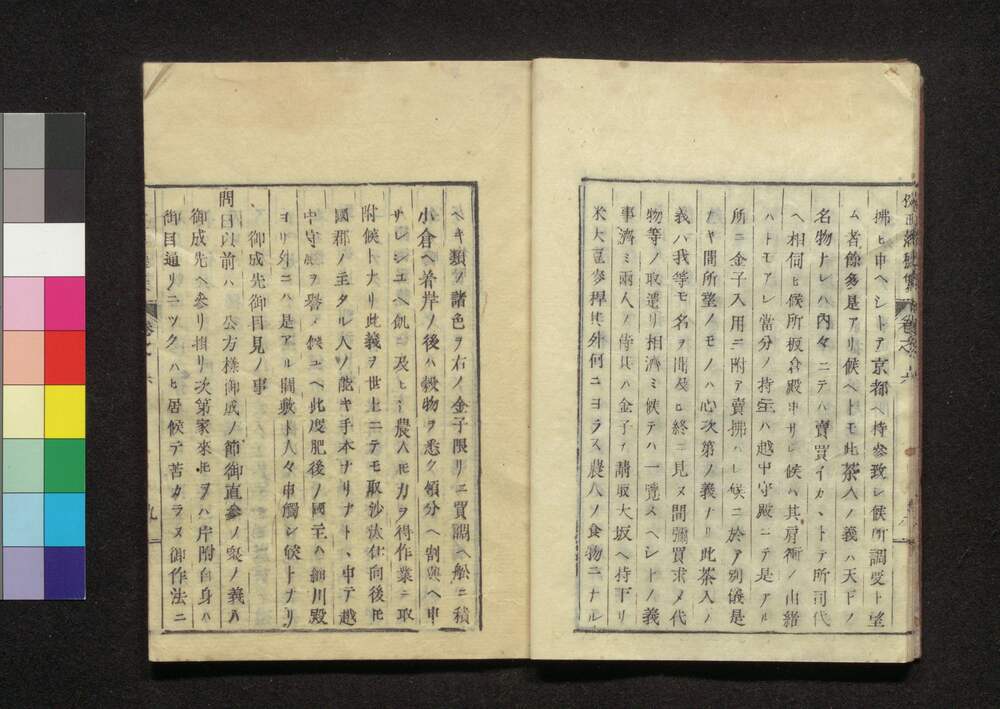 拂ヒ申ヘシトア京都ヘ持參致シ候所調受ト望
ム者餘多是アリ候ヘトモ此茶入ノ義ハ天下ノ
名物ナレハ內々ニテハ賣買イカヽトテ所司代
ヘ相伺ヒ候所板倉殿申サレ候ハ其肩衝ノ由緖
ハトモアレ當分ノ持主ハ越中守殿ニテ是アル
所ニ金子入用ニ附ア賣拂ハレ候ニ於ア別儀是
ナキ間所望ノモノハ心次第ノ義ナリ此茶入ノ
義ハ我等モ名ヲ聞及ヒ終ニ見メ間彌買求メ代
物等ノ取遣リ相濟ミ候テハ一覽スヘシトノ義
事濟ミ兩人ノ侍共ハ金子ヲ請取大坂ヘ持下リ
米大豆麥稗其外何ニヨラス農人ノ食物ニナル
ヘキ類ノ諸色ヲ右ノ金子限リニ買調ヘ舩ニ積
小倉ヘ着岸ノ後ハ穀物ヲ悉ク領分ヘ割與ヘ申
サレシユヘ飢ニ及ヒシ農人モ力ヲ得作業ニ取
附候ト大リ此義ヲ世上ニテモ取沙汰仕向後モ
國郡ノ主タル人ノ能キ手本ナリナト、申テ越
中守殿ヲ譽メ候ユヘ此度肥後ノ國主ハ細川殿
ヨリ外ニハ是アル間敷ト人々申觸シ候トナリ
御成先御目見ノ事
問曰以前ハ 公方樣御成ノ節御直參ノ衆ノ義ハ
御成先ヘ參リ損リ次第家來モヲハ片附自身ハ
御目通リニツクハヒ居候デ苦カラヌ御作法ニ
卷之六
九